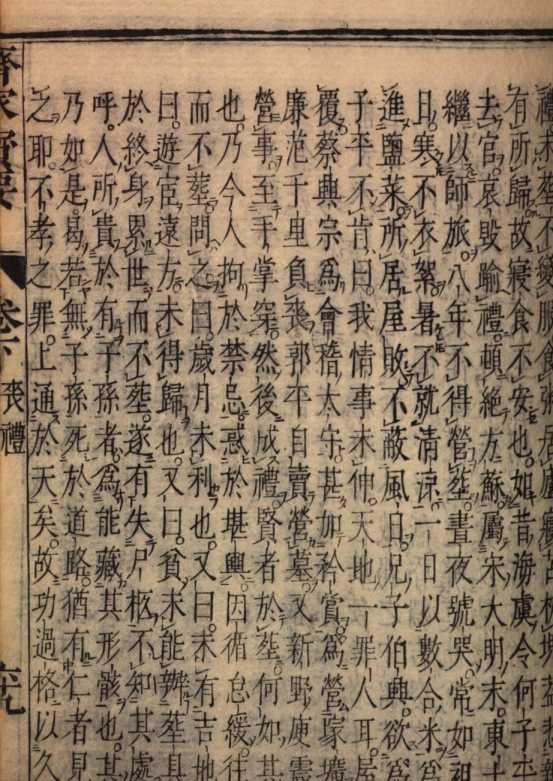 有所歸故寢食不安也如昔海虞令何子平
去官哀毀踰禮頓絕方蘇屬宋大明末東土
繼以師旅八年不得營塟晝夜號哭常如袒
且寒不衣絮暑不就清涼一日以數合米爲
進鹽菜所居屋敗不蔽風日兄子伯興欲爲
子平不肯曰我情事未伸天地一罪人耳屋
覆蔡興宗爲會稽太守甚加矜賞爲營冢壙
廉范千里負喪郭平自賣營墓又新野庾震
營事至手掌穿然後成禮賢者於塟何如其
也乃今人拘於禁忌惑於堪輿因循怠緩往
而不塟問之曰歲月未利也又曰未有吉地
曰遊宦遠方未得歸也又曰貧未能辦塟具
於終身累世而不塟遂有失尸柩不知其處
呼人所貴於有子孫者爲能藏其形骸也其
乃如是曷若無子孫死於道路猶有仁者見
之耶不孝之罪上通於天矣故功過格以久
齊家寶要 卷下 喪禮